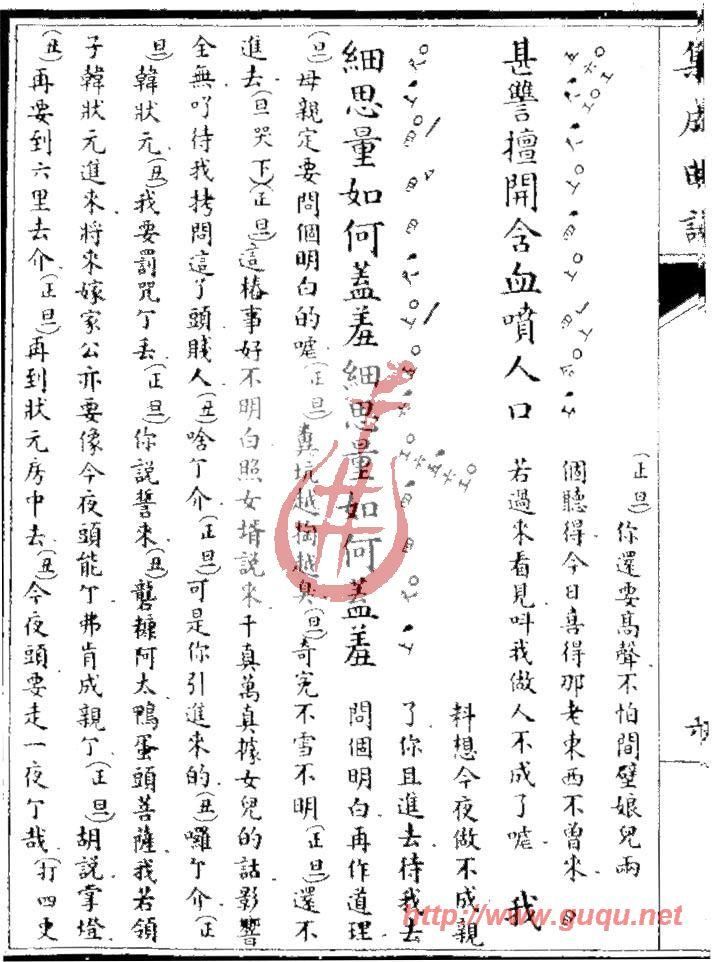 集成曲譜
甚讐擅開含血噴人口
(正旦)你還要髙聲不怕間壁娘兒兩
個聽得今日喜得那老東西不曾來
若過來看見呌我做人不成了嘘
我
細思量如何蓋羞細思量如何蓋羞
料想今夜做不成親
了你且進去待我去
問個明白再作道理
(旦)母親定要問個明白的嘘(正旦)糞坑越掏越臭(旦)奇寃不雪不明(正旦)還不
進去(旦哭下)(正旦)這樁事好不明白照女壻説來千真萬真據女兒的話影響
全無吖待我拷問這丫頭賤人(丑)啥亇介(正旦)可是你引進來的(丑)囉亇介(正
旦)韓狀元(丑)我要罰咒亇丢(正旦)你說誓來(丑)礱糠阿太鴨蛋頭菩薩我若領
子韓狀元進來將來嫁家公亦要像今夜頭能亇弗肯成親亇(正旦)胡說掌燈
(丑)再要到六里去介(正旦)再到狀元房中去(丑)今夜頭要走一夜亇哉(打四更
http://www.guqu.net